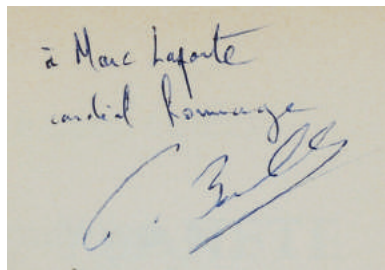 à Marc Laporte
cordial hommage